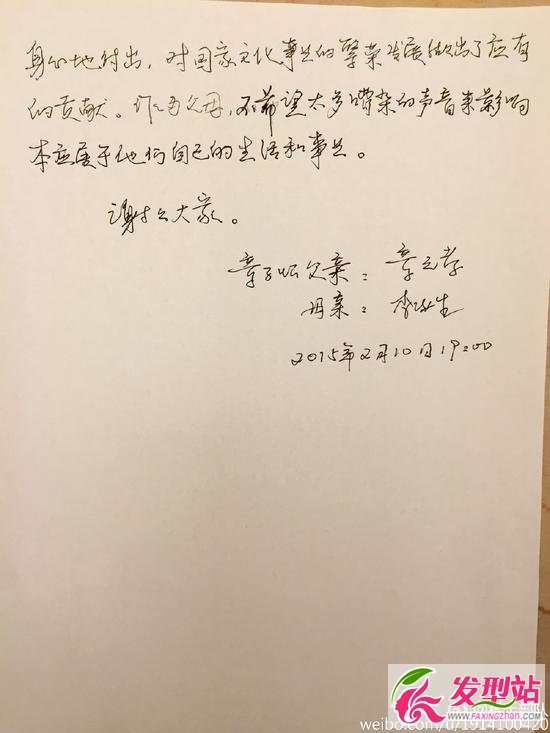 身心地付出，对国家文化事业的繁荣发展做出了应有
的贡献。作为父母，不希望太多嘈杂的声音来影响
本应属于他们自己的生活和事业。
谢谢大家。
章子怡父亲：章元孝
母亲：李涿生
2015年2月10日19:00
发型站
www.FAXINGZHAN.com
weibo.com/u/1914100420